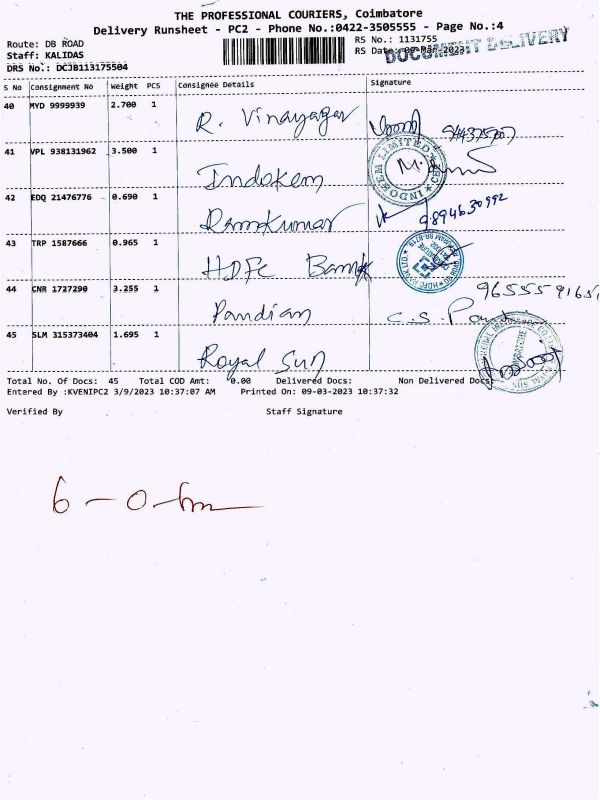 THE PROFESSIONAL COURIERS, Coimbatore
Delivery Runsheet - PC2 - Phone No.:0422-3505555 - Page No.:4
Route: DB ROAD
Staff: KALIDAS
DRS No.: DCJB113175504
RS No.: 1131755
RS Date: 09-Mar-2023
DOCUMENT DELIVERY
S No Consignment No Weight PCS Consignee Details Signature
40 MYD 9999939 2.700 1 R. Vinayagar
41 VPL 938131962 3.500 1 Indokem
INDOKEM LIMITED
42 EDQ 21476776 0.690 1 Ramkumar 9894630992
43 TRP 1587666 0.965 1 HDFC Bank
44 CNR 1727290 3.255 1 Pandian C.S.
45 SLM 315373404 1.695 1 Royal Sun
Total No. Of Docs: 45 Total COD Amt: 0.00 Delivered Docs: Non Delivered Docs:
Entered By :KVENIPC2 3/9/2023 10:37:07 AM Printed On: 09-03-2023 10:37:32
Verified By Staff Signature